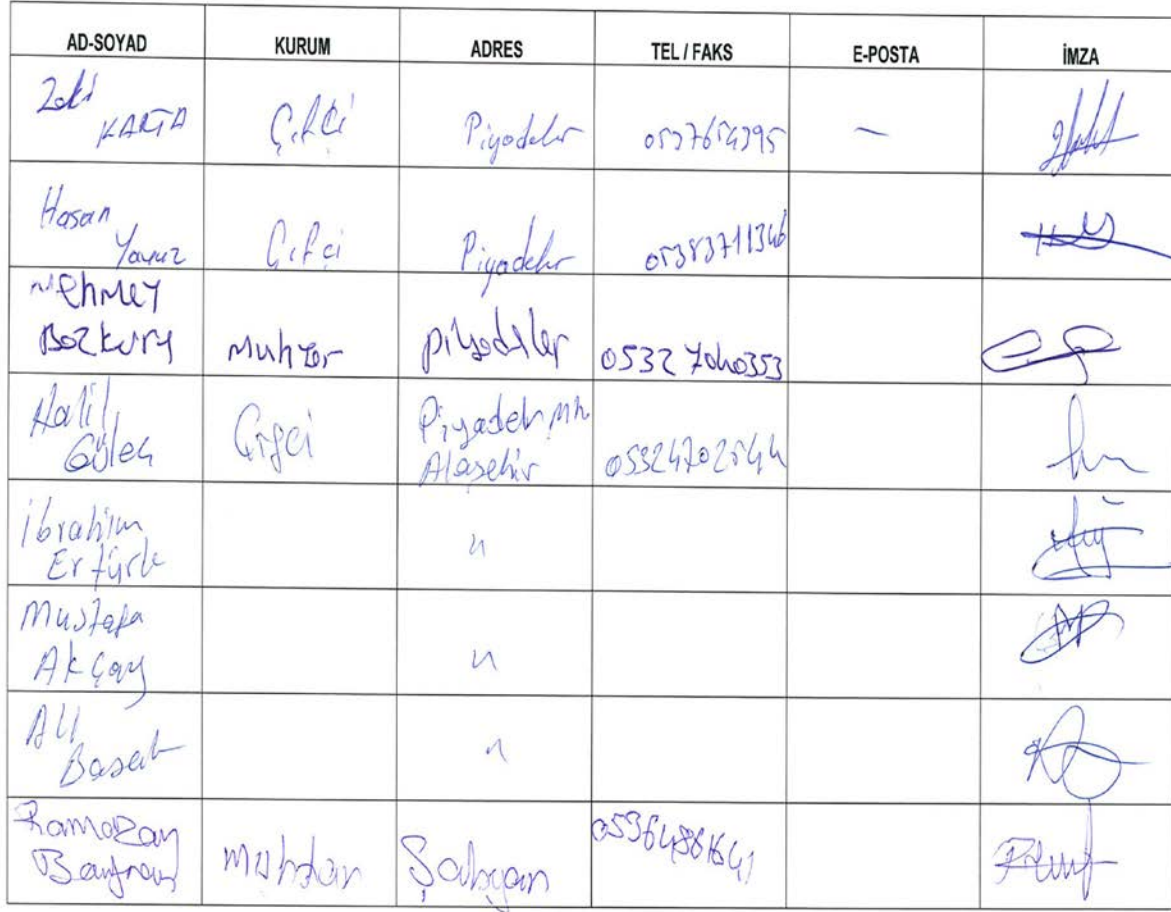 AD-SOYAD KURUM ADRES TEL / FAKS E-POSTA İMZA
Zeki
KARTA Çifçi Piyadeler –
Hasan
Yavuz Çifçi Piyadeler 05383711346
Mehmet
Bozkurt Muhtar piyadeler 0532 7040353
Halil
Güleç Çifçi Piyadeler Mh
Alaşehir 05324702544
İbrahim
Ertürk "
Mustafa
Akçay "
Ali
Başak "
Ramazan
Bayram Muhtar